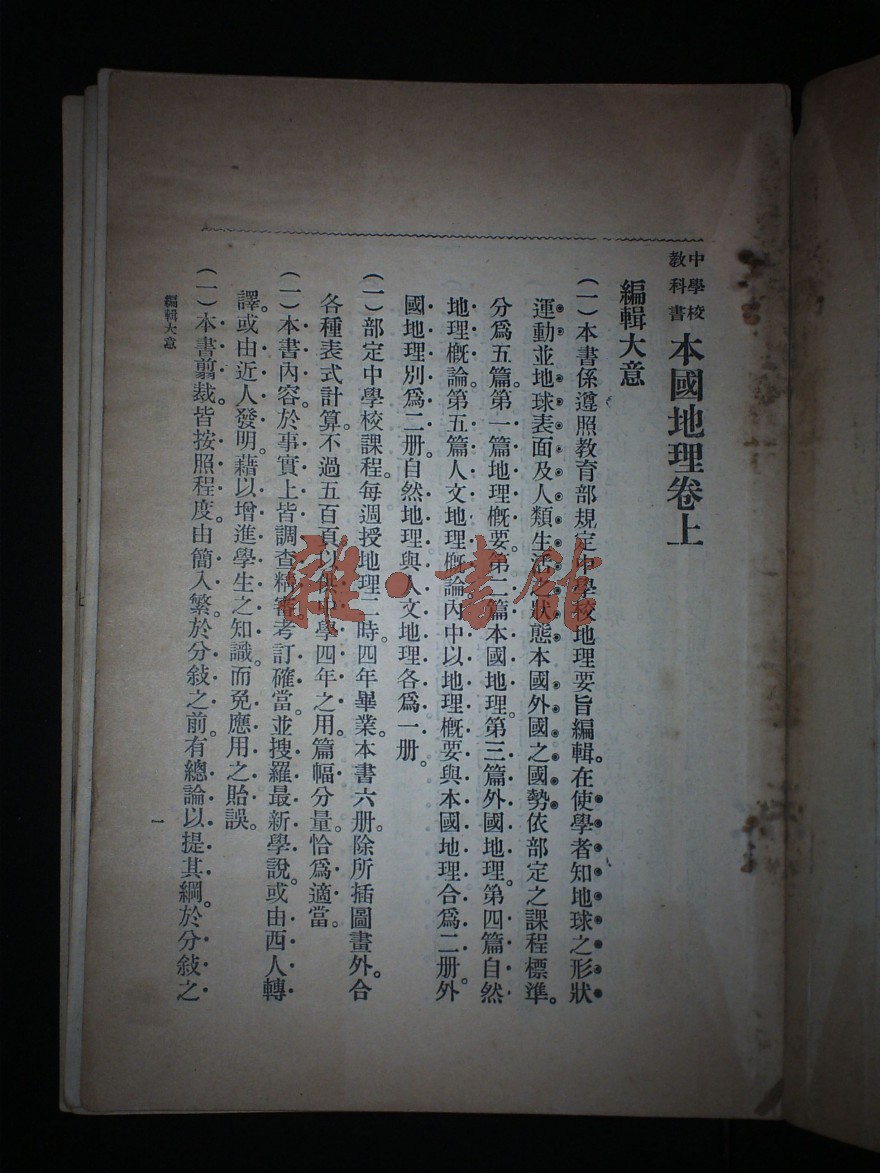 中學校
教科書
本國地理卷上
編輯大意
(一)本書係遵照教育部規定中學校地理要旨編輯。在使學者知地球之形狀
運動並地球表面及人類生活之狀態本國外國之國勢依部定之課程標準。
分爲五篇。第一篇地理概要。第二篇本國地理。第三篇外國地理。第四篇自然
地理概論。第五篇人文地理概論內中以地理概要與本國地理合爲二册。外
國地理別爲二册。自然地理與人文地理各爲一册。
(一)部定中學校課程。每週授地理二時。四年畢業。本書六册。除所插圖畫外。合
各種表式計算。不過五百頁。以供中學四年之用。篇幅分量。恰爲適當。
(一)本書內容。於事實上皆調查精審。考訂確當。並搜羅最新學說。或由西人轉
譯。或由近人發明。藉以增進學生之知識。而免應用之貽誤。
(一)本書翦裁。皆按照程度。由簡入繁。於分敍之前。有總論以提其綱。於分敍之
編輯大意
一
雜·書館